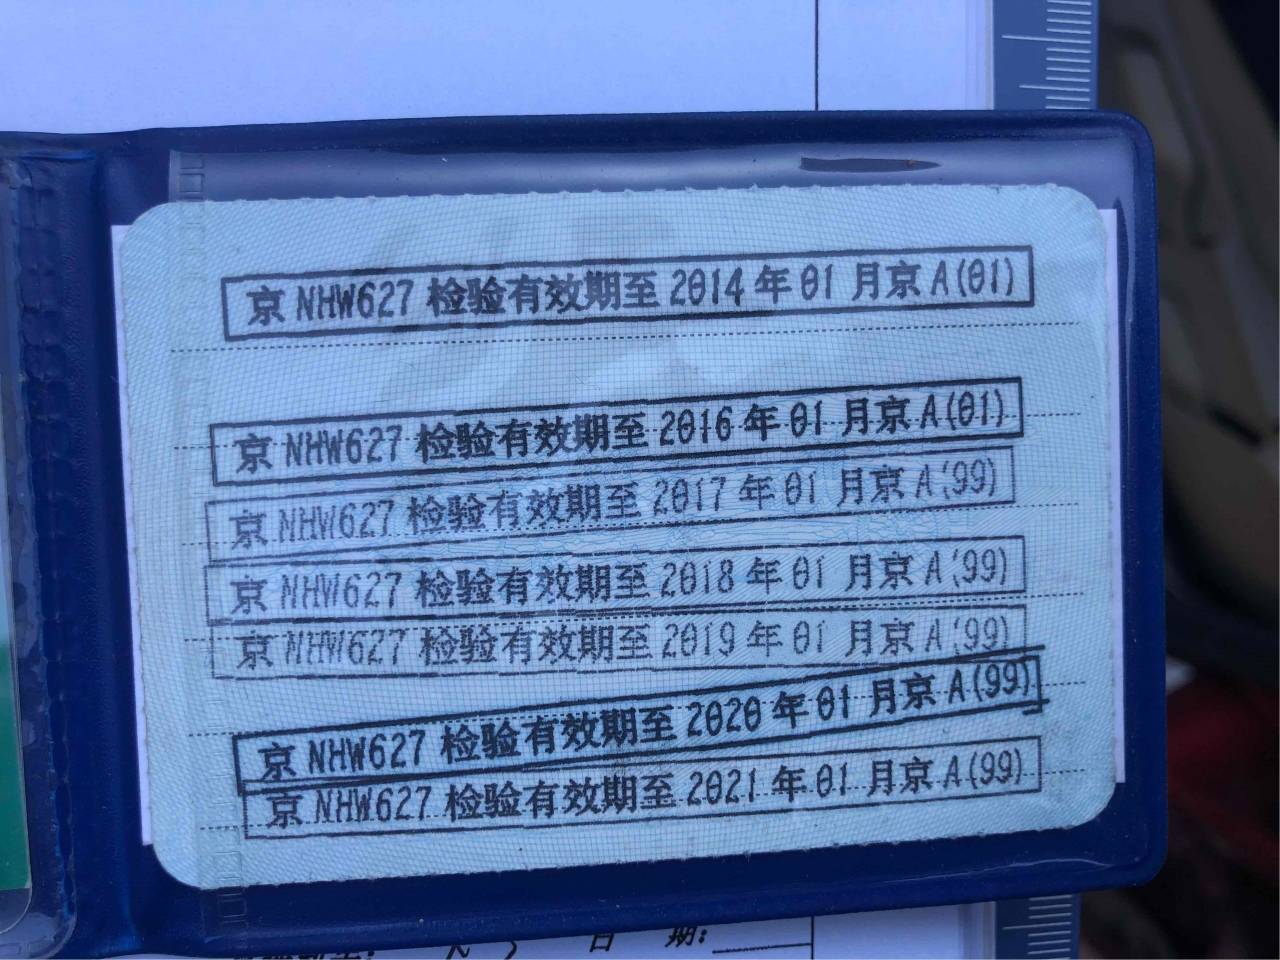 京 NHW627 检验有效期至 2014 年 01 月京 A(01)
京 NHW627 检验有效期至 2016 年 01 月京 A(01)
京 NHW627 检验有效期至 2017 年 01 月京 A(99)
京 NHW627 检验有效期至 2018 年 01 月京 A(99)
京 NHW627 检验有效期至 2019 年 01 月京 A(99)
京 NHW627 检验有效期至 2020 年 01 月京 A(99)
京 NHW627 检验有效期至 2021 年 01 月京 A(99)
日 期: